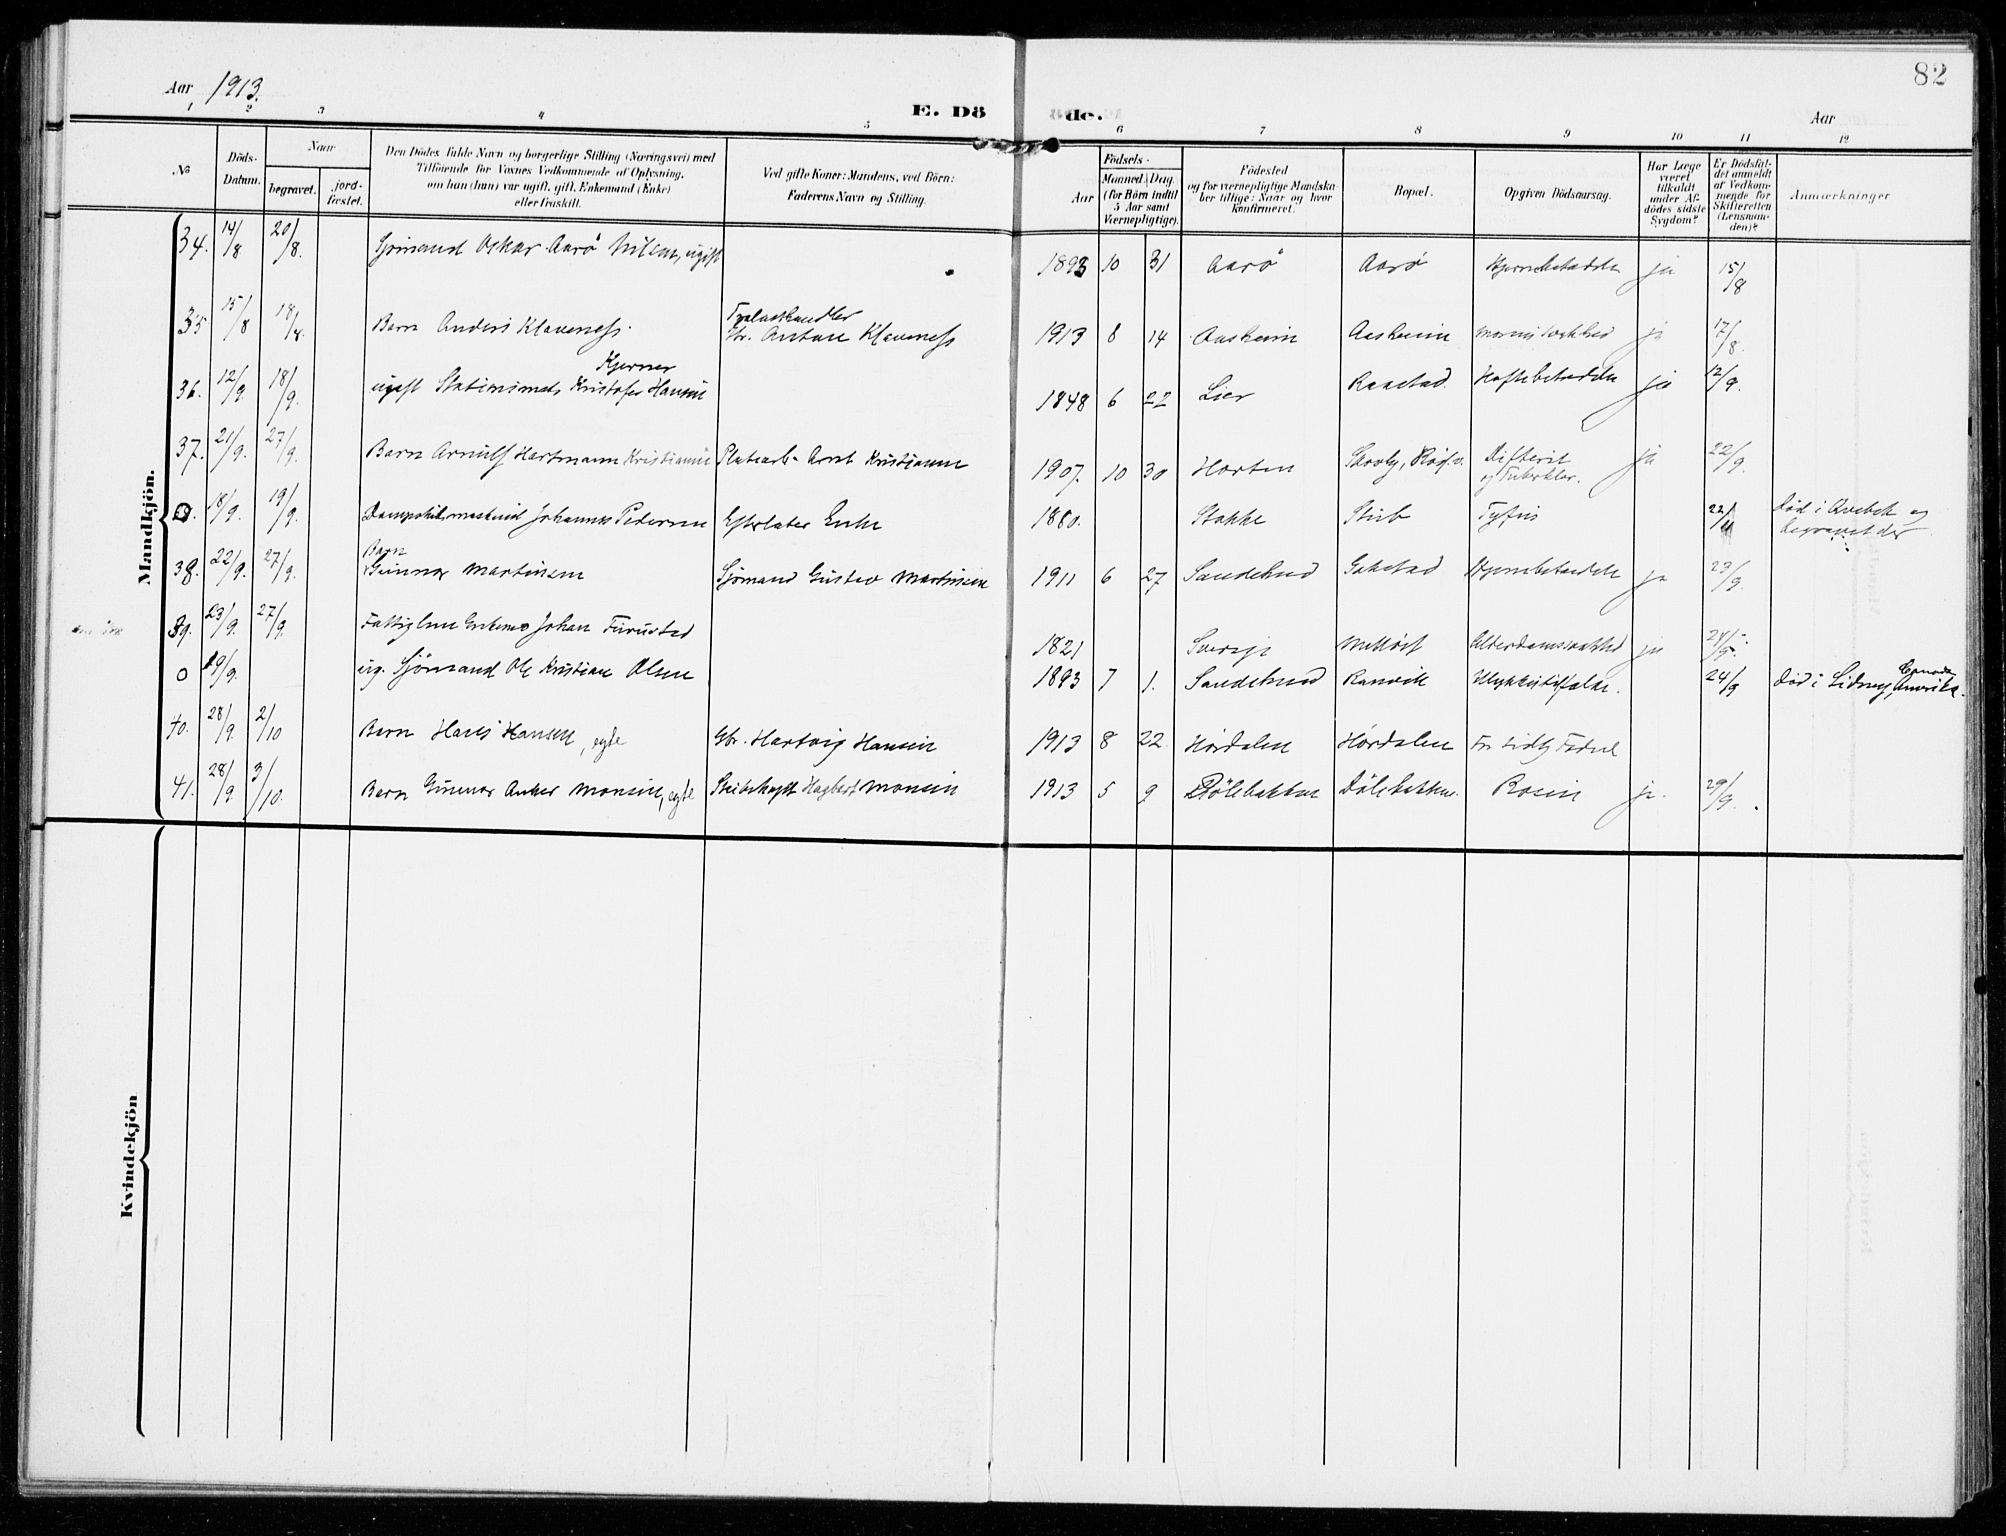 82
Aar 1913.
E. Dö de.
Aar
1 2 3 4 5 6 7 8 9 10 11 12
No
Döds-
Datum.
Naar
begravet.
jord-
fæstet.
Den Dödes fulde Navn og borgerlige Stilling (Næringsvei) med
Tilföiende for Voxnes Vedkommende af Oplysning,
om han (hun) var ugift, gift, Enkemand (Enke)
eller fraskilt.
Ved gifte Koner: Mandens, ved Börn:
Faderens Navn og Stilling.
Födsels-
Aar
Maaned.
Dag
(for Börn indtil
5 Aar samt
Værnepligtige).
Födested
og for værnepligtige Mandska-
ber tillige: Naar og hvor
konfirmeret.
Bopæl.
Opgiven Dödsaarsag.
Har Læge
været
tilkaldt
under Af-
dödes sidste
Sygdom?
Er Dödsfal-
det anmeldt
af Vedkom-
mende for
Skifteretten
(Lensman-
den)?
Anmærkninger
Mandkjön.
34. 14/8 20/8. Sjömand Oskar Aarö Nilsen, ugift 1893 10 31 Aarö Aarö Hjernebetændelse ja 15/8
Trælasthandler
35 15/8 18/8. Barn Anders Klaveness. Gbr. Anton Klaveness 1913 8 14 Aasheim Aasheim ja 17/8.
Kjerner
36. 12/9 18/9. ugift Stationsmets Kristofer Hansen 1848 6 22 Lier Raastad. ja 12/9.
37. 21/9. 27/9. Barn Arnulf Hartmann Kristiansen Platearb. Arnt Kristiansen 1907. 10 30 Horten Difterit
og Tuberkler. ja 22/9.
0. 18/9. 19/9. Johannes Pedersen Efterlater Enke 1880. Stokke Stub Tyfus 22/11 Död i Qvebek og
begravet der
Barn
38. 22/9. 27/9. Gunnar Martinsen Sjömand Gustav Martinsen 1911 6 27 Sandeherred Gokstad Hjernebetændelse ja 23/9.
39. 23/9. 27/9. Fattiglem Enkem. Johan Furustad 1821 Sverige Alderdomssvakhed ja
0 19/9. ug. Sjömand Ole Kristian Olsen 1893 7 1. Sandeherred Ranvik Ulykkestilfælde. 24/9 Död i Sidney, Canada
Amerika.
40. 28/9. 2/10 Barn Hans Hansen, egte Gbr. Hartvig Hansen 1913 8 22. Hördalen Hördalen For tidlig Födsel
41. 28/9. 3/10. Barn Gunnar Anker Monsen, egte Skibskapt Hagbart Monsen 1913 5 9 Dölebakken Dölebakken. ja. 29/9.
Kvindekjön